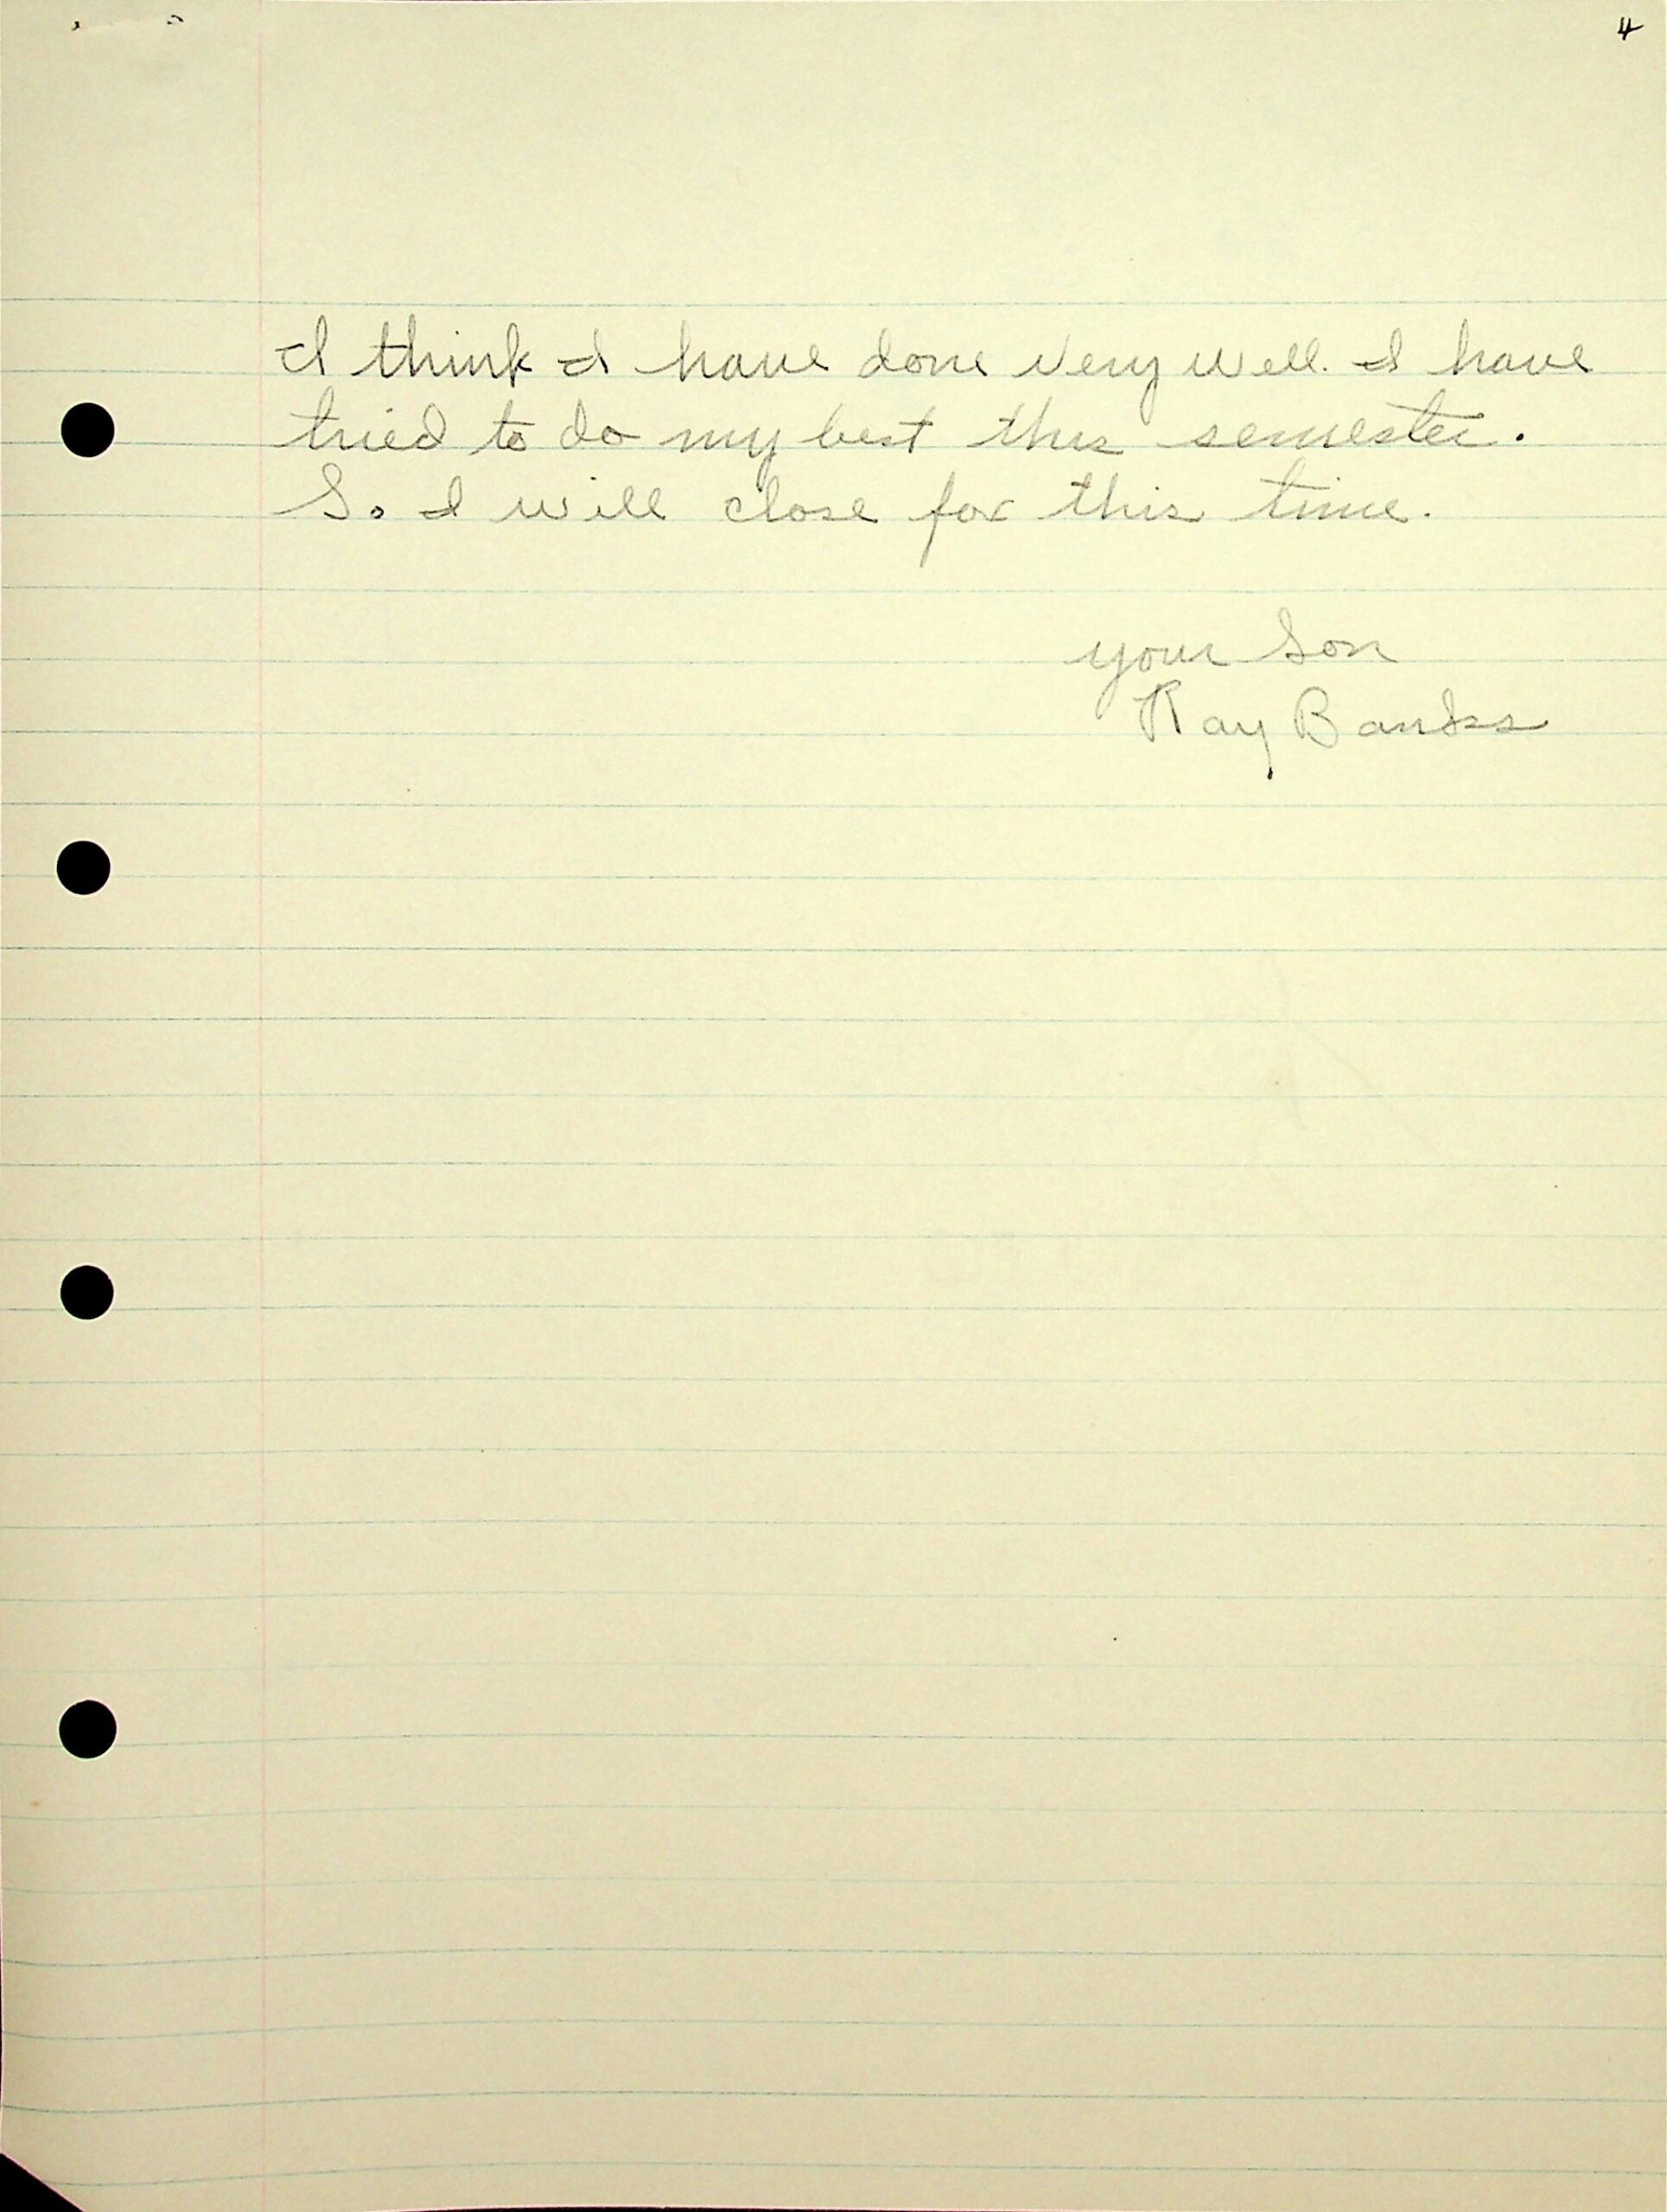 4
I think I have done very well. I have
tried to do my best this semester.
So I will close for this time.
your Son
Ray Banks